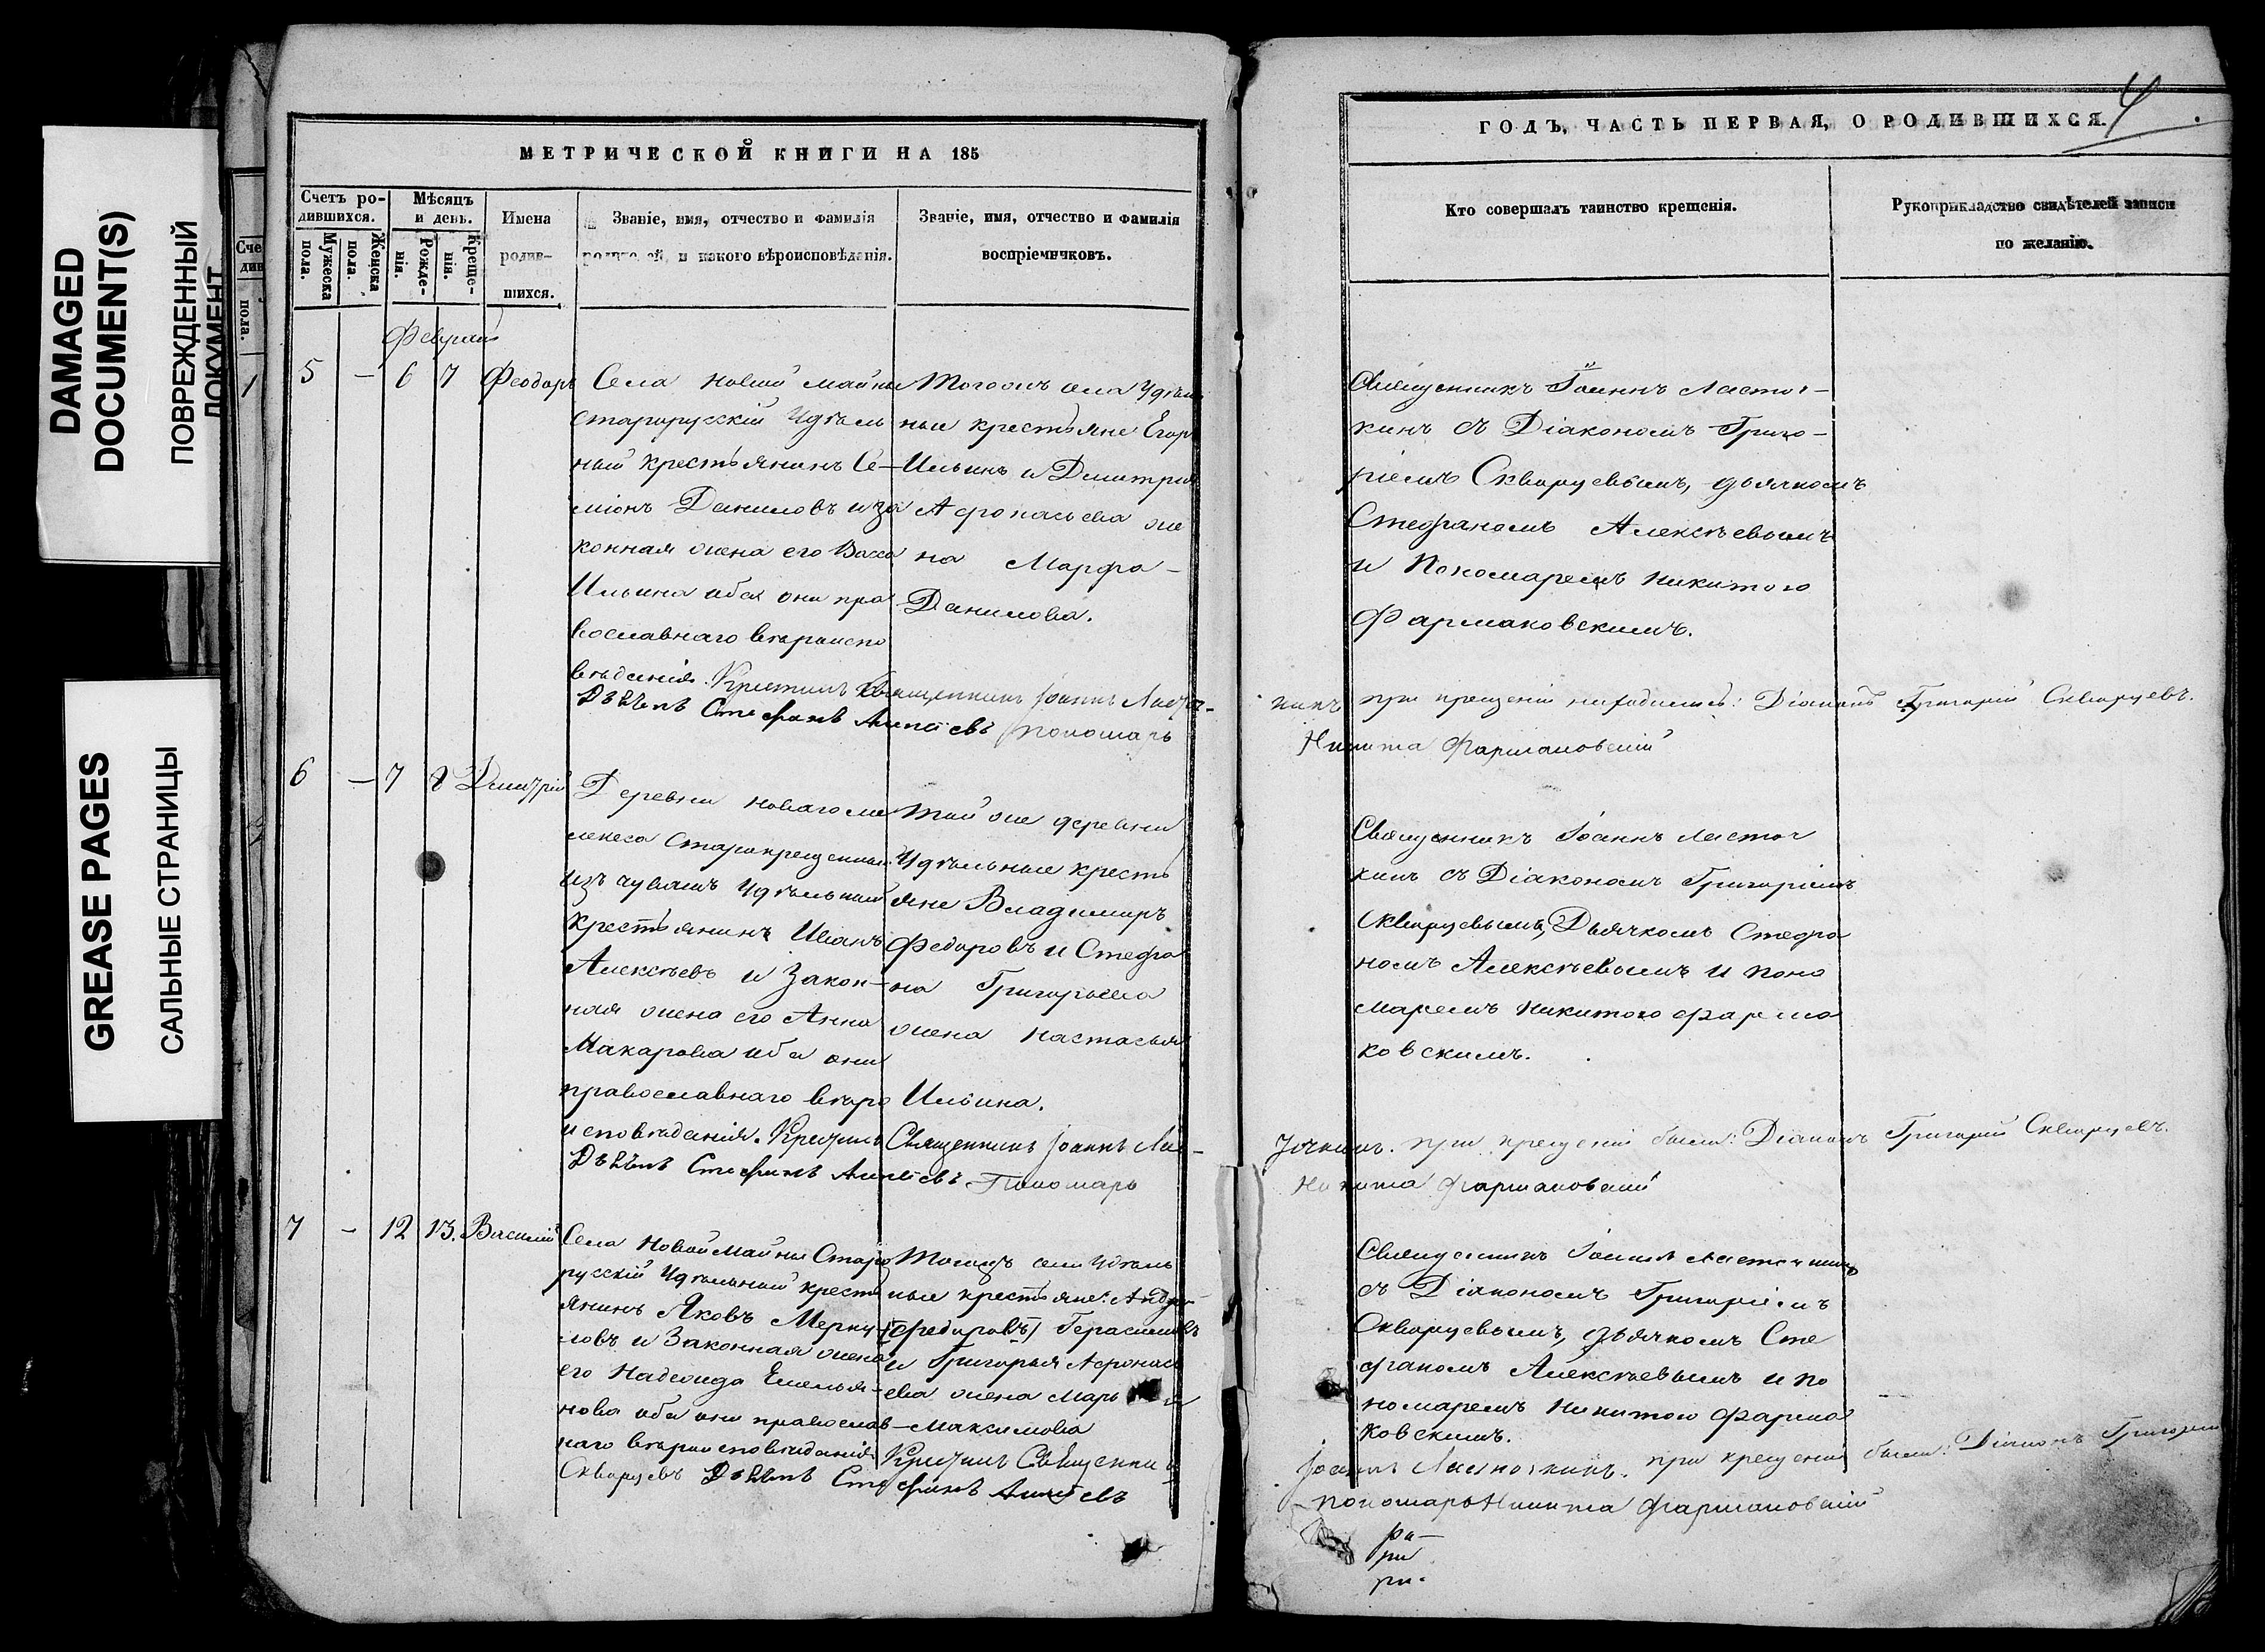 DAMAGED
DOCUMENT(S)
ПОВРЕЖДЕННЫЙ
ДОКУМЕНТ
GREASE PAGES
САЛЬНЫЕ СТРАНИЦЫ
МЕТРИЧЕСКОЙ КНИГИ НА 185
Счетъ ро-
дившихся.
Мужеска
пола.
Женска
пола.
Мѣсяцъ
и день.
Рожде-
нія.
Креще-
нія.
Имена
родив-
шихся.
Званіе, имя, отчество и фамилія
родителей, и какого вѣроисповѣданія.
Званіе, имя, отчество и фамилія
воспріемниковъ.
Февраль
5 — 6 7 Феодоръ
Села Новой Майны
старорусскій Удѣль
ный крестьянинъ Се-
міонъ Даниловъ и за
конная жена его Васса
Ильина оба они пра
вославнаго вѣроиспо
вѣданія. Крестилъ Священникъ Іоаннъ Ласточ-
Дьячекъ Стефанъ Алексѣевъ Пономарь
Тогожъ села Удѣль
ные крестьяне Егоръ
Ильинъ и Димитрія
Афонасьева же
на Марфа
Данилова.
6 — 7 8 Димитрій
Деревни Новаго ме
лекеса Старокрещенный
изъ чувашъ Удѣльный
крестьянинъ Иванъ
Алексѣевъ и Закон-
ная жена его Анна
Макарова оба они
православнаго вѣро
исповѣданія. Крестилъ Священникъ Іоаннъ Лас-
Дьячекъ Стефанъ Алексѣевъ Пономарь
Той же деревни
Удѣльные кресть
яне Владимиръ
Федоровъ и Стефа
на Григорьева
жена Настасья
Ильина.
7 — 12 13. Василій
Села Новой Майны Старо
русскій Удѣльный кресть
янинъ Яковъ Мерку
ловъ и Законная жена
его Надежда Емелья-
нова оба они православ-
наго вѣроисповѣданія Крестилъ Священникъ
Скворцевъ Дьячекъ Стефанъ Алексѣевъ
Тогожъ села Удѣль
ные крестьяне: Андрей
(Федоровъ) Герасимовъ
и Григорья Афонась
ева жена Марья
Максимова
ГОДЪ, ЧАСТЬ ПЕРВАЯ, О РОДИВШИХСЯ.
4
Кто совершалъ таинство крещенія.
Рукоприкладство свидѣтелей записи
по желанію.
Священникъ Іоаннъ Ласточ-
кинъ съ Діакономъ Григо-
ріемъ Скворцевымъ, дьячкомъ
Стефаномъ Алексѣевымъ
и Пономаремъ Никитою
Фармаковскимъ.
кинъ при крещеніи находились: Діаконъ Григорій Скворцевъ.
Никита Фармаковскій
Священникъ Іоаннъ Ласточ
кинъ съ Діакономъ Григоріемъ
Скворцевымъ, Дьячкомъ Стефа
номъ Алексѣевымъ и поно
маремъ Никитою Фармо
ковскимъ.
точкинъ. при крещеніи были: Діаконъ Григорій Скворцевъ.
Никита Фармаковскій
Священникъ Іоаннъ Ласточкинъ
съ Діакономъ Григоріемъ
Скворцевымъ, дьячкомъ Сте
фаномъ Алексѣевымъ и по
номаремъ Никитою Фармо
ковскимъ.
Іоаннъ Ласточкинъ. при крещеніи были: Діаконъ Григорій
пономарь Никита Фармаковскій
ра—
ри
ри.